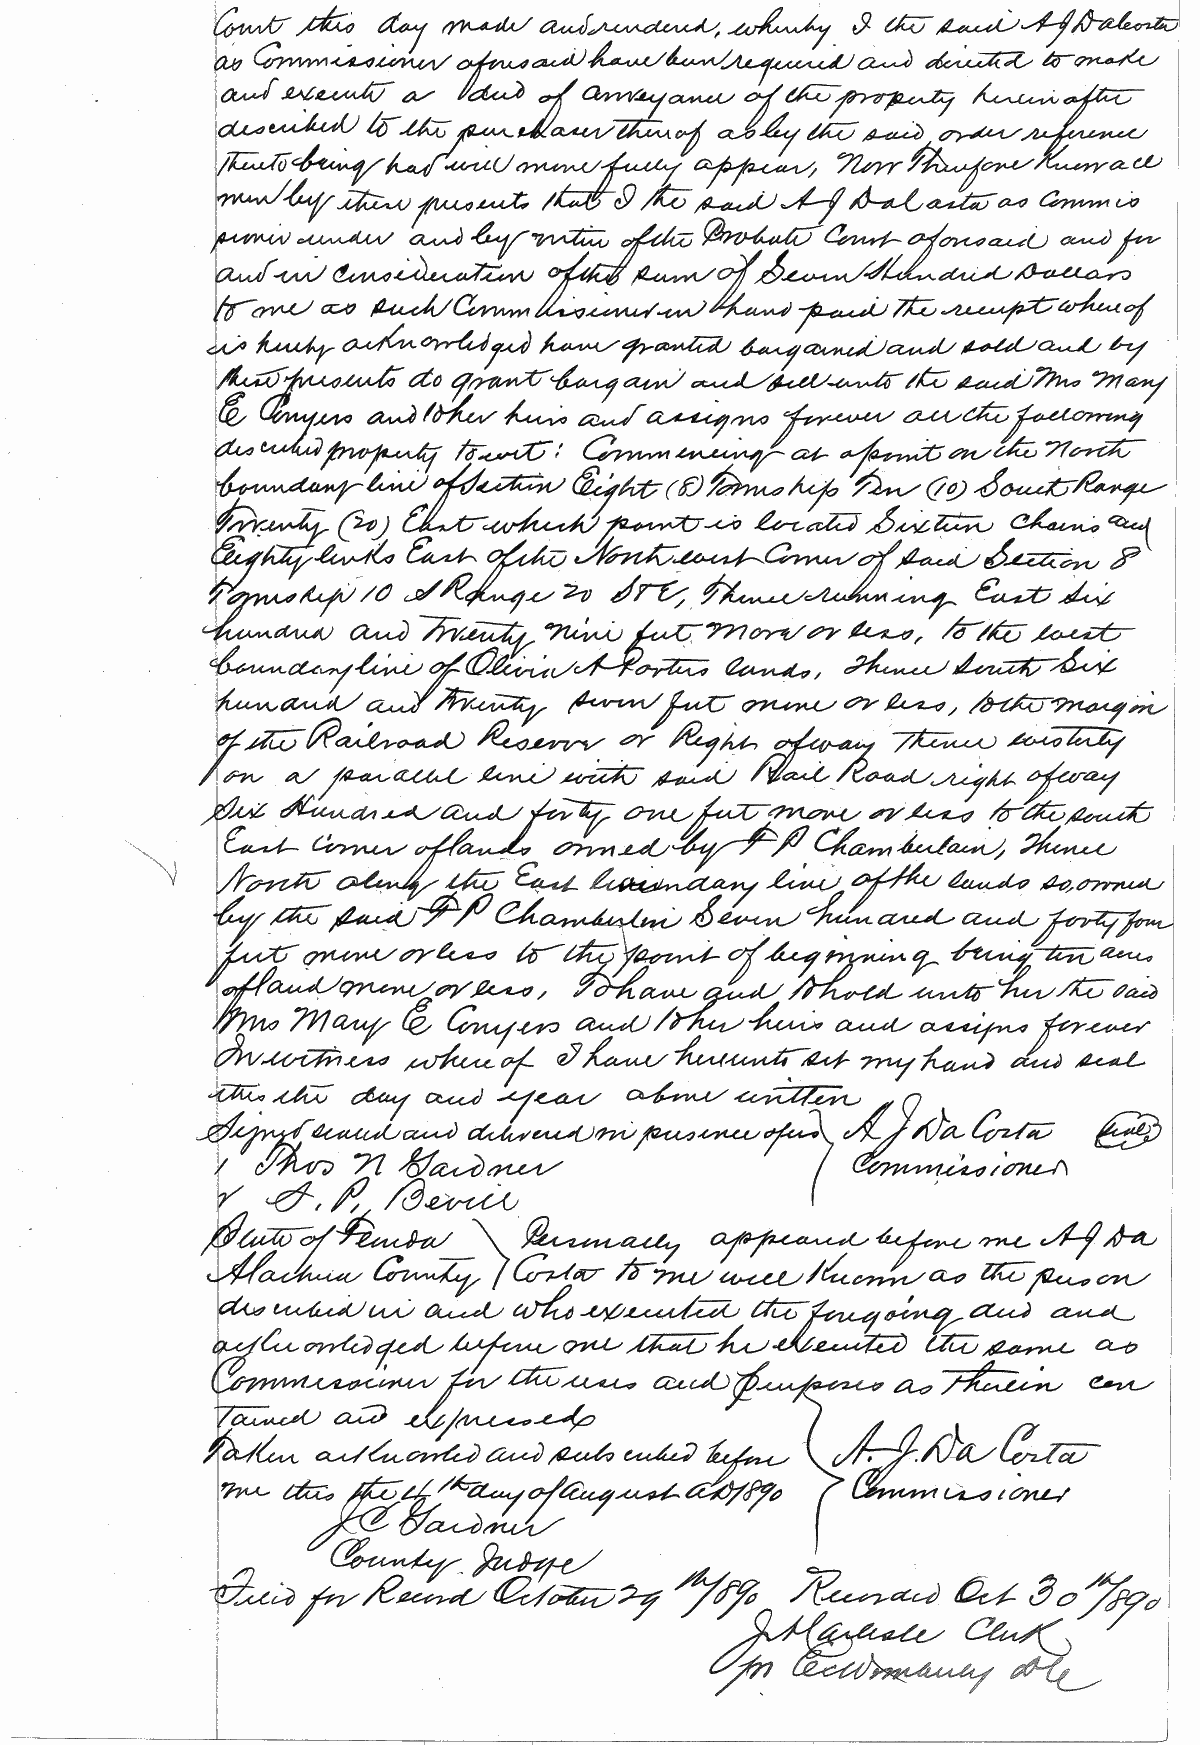 Court this day made and rendered, whereby I the said A J Dacosta
as Commissioner aforesaid have been required and directed to make
and execute a deed of conveyance of the property herein after
described to the purchaser thereof as by the said order reference
thereto being had will more fully appear, Now Therefore Know all
men by these presents that I the said A J DaCosta as Commis
sioner under and by virtue of the Probate Court aforesaid and for
and in consideration of the sum of Seven Hundred Dollars
to me as such Commissioner in hand paid the receipt whereof
is hereby acknowledged have granted bargained and sold and by
these presents do grant bargain and sell unto the said Mrs Mary
E Conyers and to her heirs and assigns forever all the following
described property to wit: Commencing at a point on the North
boundary line of Section Eight (8) Township Ten (10) South Range
Twenty (20) East which point is located Sixteen Chains and
Eighty links East of the North west Corner of said Section 8
Township 10 S Range 20 S & E, Thence running East Six
hundred and twenty nine feet more or less, to the west
boundary line of Olivia A Porters lands, Thence South Six
hundred and twenty seven feet more or less, to the margin
of the Railroad Reserve or Right of way Thence westerly
on a parallel line with said Rail Road right of way
Six Hundred and forty one feet more or less to the south
East corner of lands owned by F P Chamberlain, Thence
North along the East boundary line of the lands so owned
by the said F P Chamberlin Seven hundred and forty four
feet more or less to the point of beginning being ten acres
of land more or less, To have and to hold unto her the said
Mrs Mary E Conyers and to her heirs and assigns forever
In witness where of I have hereunto set my hand and seal
this the day and year above written
Signed sealed and delivered in presence of us A J Da Costa (seal)
1 Thos N Gardner Commissioner
2 S. P. Bevill
State of Florida Personally appeared before me A J Da
Alachua County Costa to me well Known as the person
described in and who executed the foregoing deed and
acknowledged before me that he executed the same as
Commissioner for the uses and purposes as therein con
tained and expressed
Taken acknowled and subscribed before A. J. Da Costa
me this the 4th day of August AD 1890 Commissioner
J C Gardner
County Judge
Filed for Record October 29th 1890 Recorded Oct 30th 1890
J A Carlisle Clerk
pr